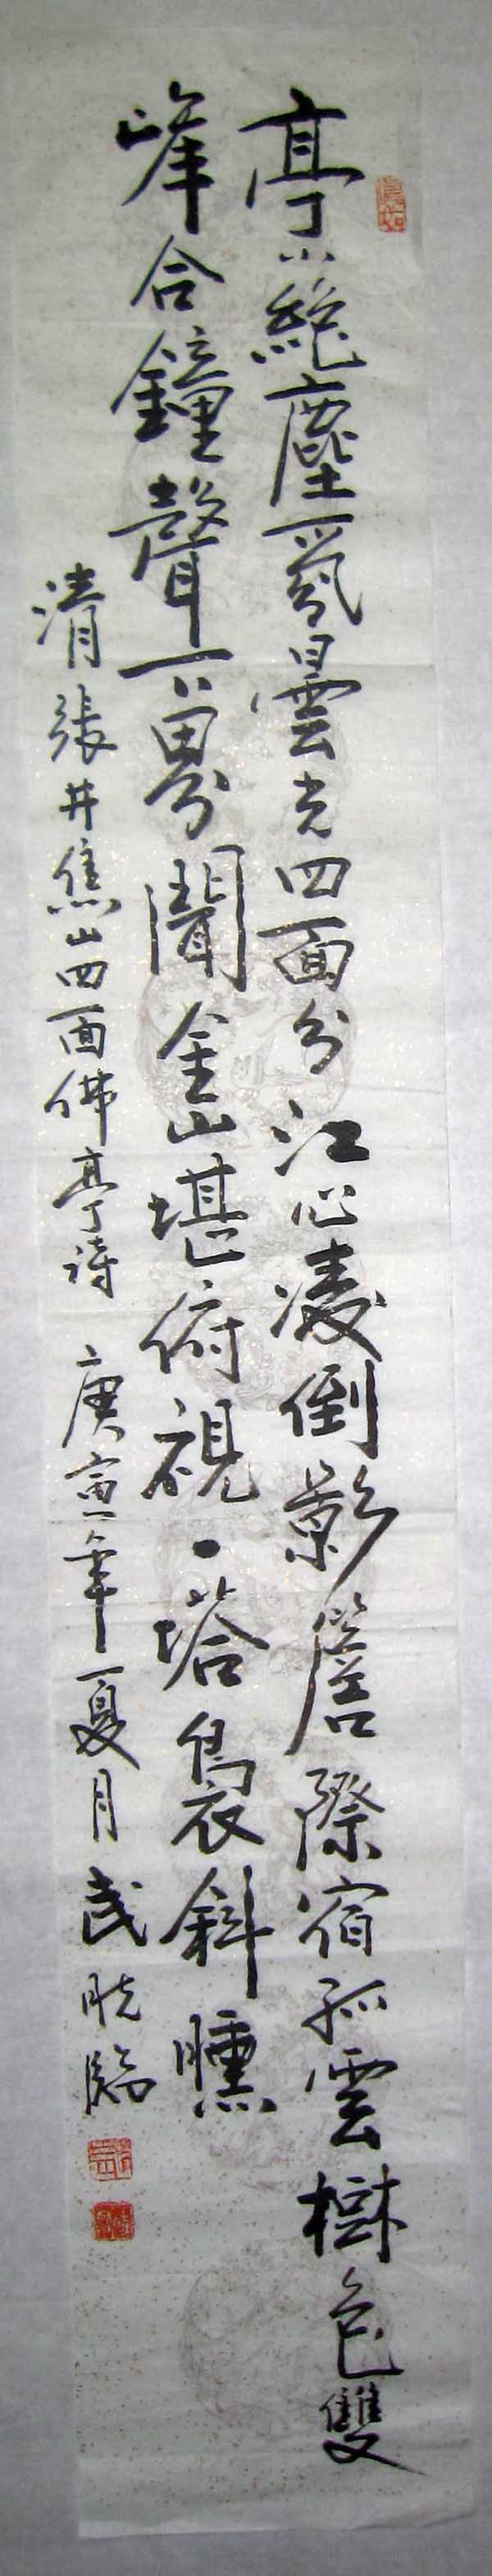 亭小絶塵氛曇光四面分江心凌倒影簷際宿孤雲樹色雙
峰合鐘聲一界聞金山堪俯視一塔裊斜曛
清張井焦山四面佛亭詩 庚寅年夏月武晄臨